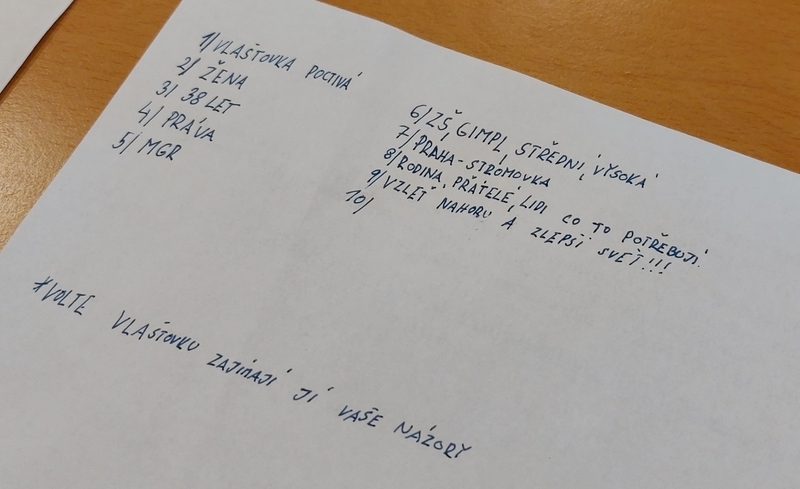 1/ VLAŠŤOVKA POCTIVÁ
2/ ŽENA
3/ 38 LET
4/ PRÁVA
5/ MGR
6/ ZŠ, GIMPL, STŘEDNÍ, VYSOKÁ
7/ PRAHA-STROMOVKA
8/ RODINA, PŘÁTELÉ, LIDI CO TO POTŘEBUJÍ
9/ VZLEŤ NAHORU A ZLEPŠI SVĚT!!!
10/
*VOLTE VLAŠŤOVKU ZAJÍMAJÍ JÍ VAŠE NÁZORY